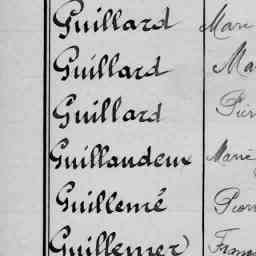 Guillard Mari
Guillard Ma
Guillard Pier
Guillaudeux Marie
Guillemé Pierr
Guillemer Franç